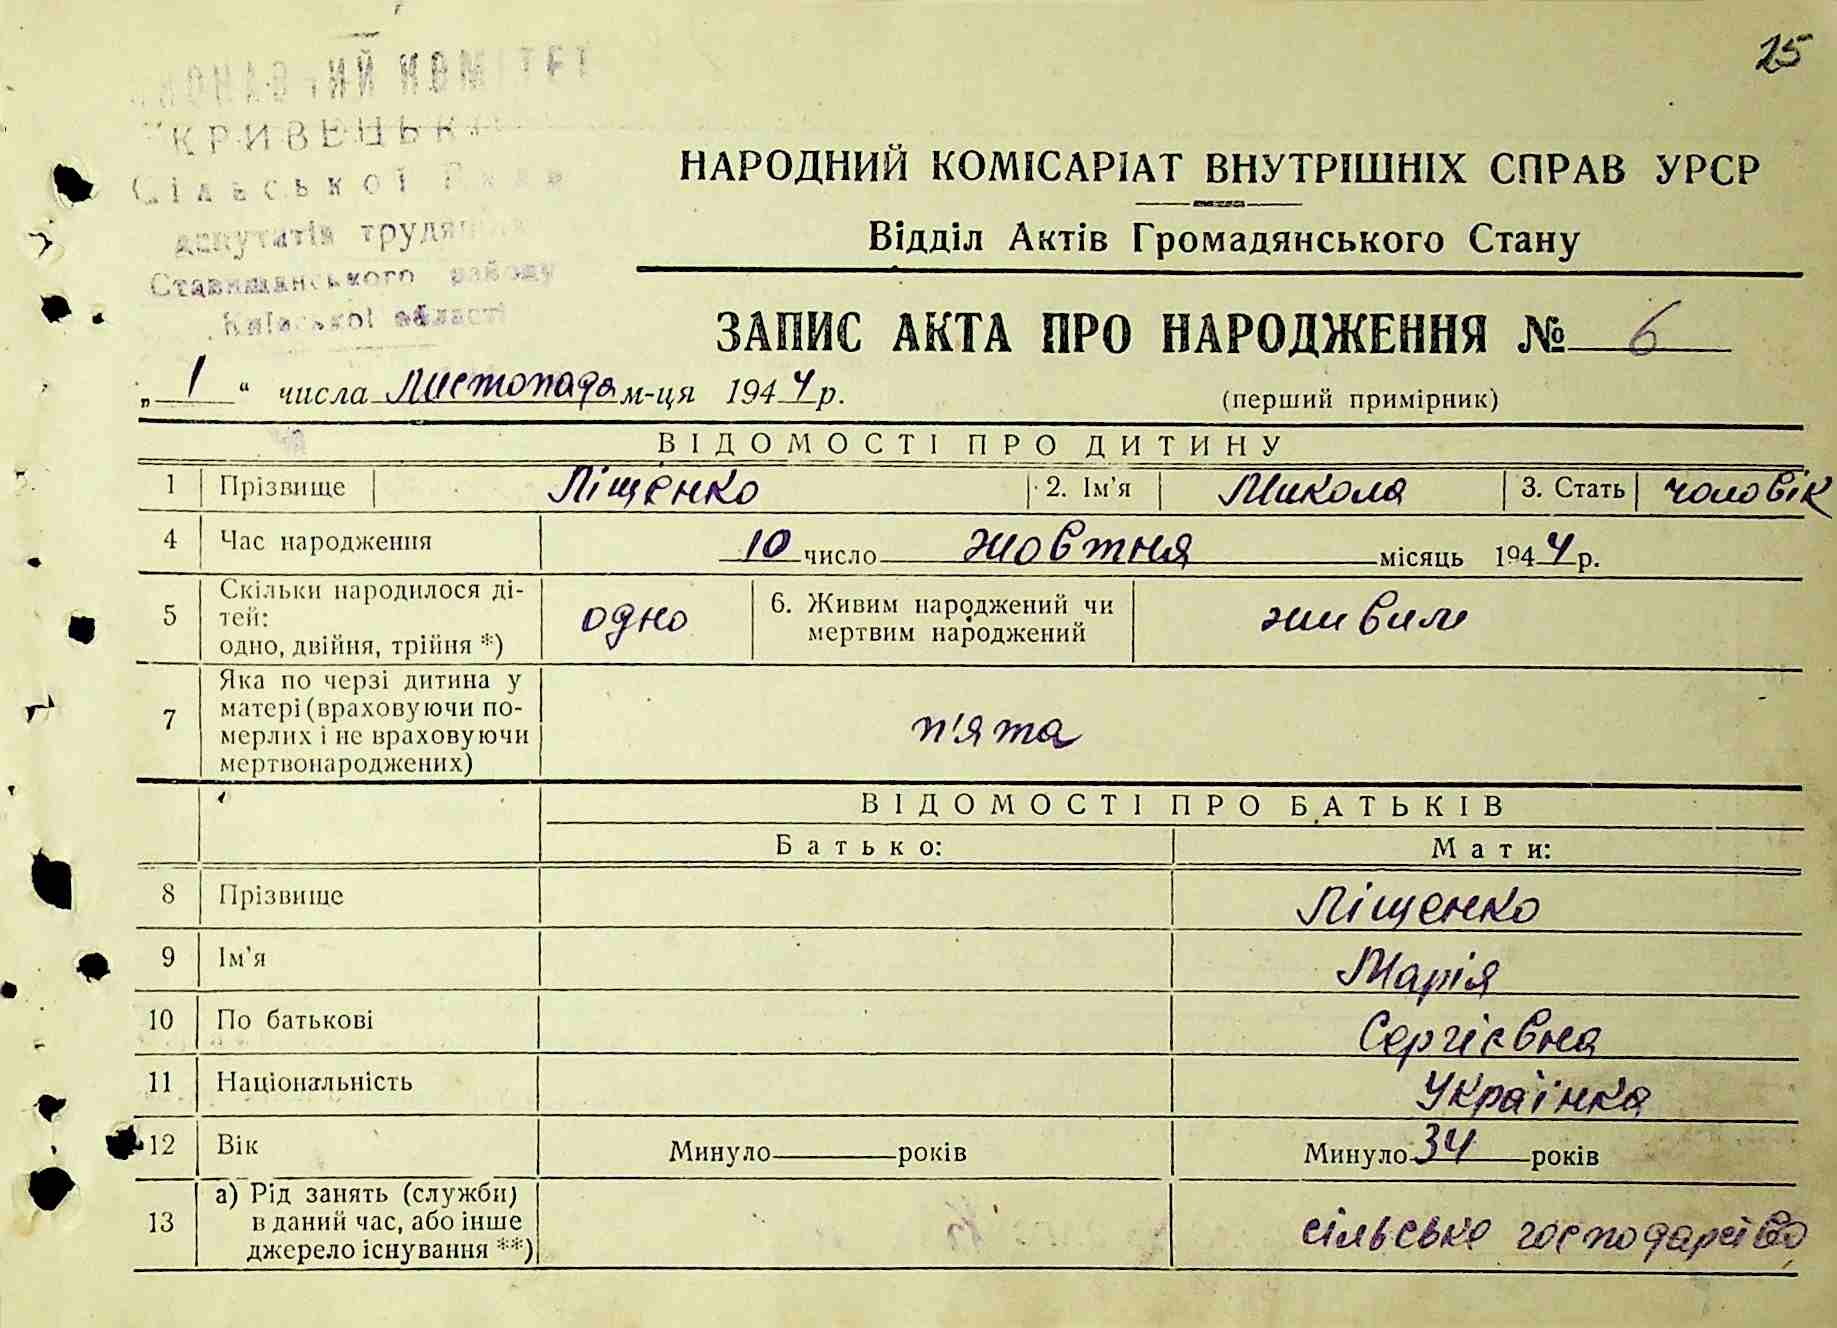 25
КОМІТЕТ
КРИВЕЦЬКА
Сільської
депутатів
Ставищанського району
Київської області
НАРОДНИЙ КОМІСАРІАТ ВНУТРІШНІХ СПРАВ УРСР
Відділ Актів Громадянського Стану
ЗАПИС АКТА ПРО НАРОДЖЕННЯ № 6
„ 1 “ числа Листопада м-ця 1944 р.
(перший примірник)
ВІДОМОСТІ ПРО ДИТИНУ
1 Прізвище Ліщенко 2. Ім'я Микола 3. Стать чоловік
4 Час народження 10 число жовтня місяць 1944 р.
5 Скільки народилося ді-
тей:
одно, двійня, трійня *) одно 6. Живим народжений чи
мертвим народжений живим
7 Яка по черзі дитина у
матері (враховуючи по-
мерлих і не враховуючи
мертвонароджених) п'ята
ВІДОМОСТІ ПРО БАТЬКІВ
Батько: Мати:
8 Прізвище Ліщенко
9 Ім'я Марія
10 По батькові Сергієвна
11 Національність Українка
12 Вік Минуло років Минуло 34 років
13 а) Рід занять (служби)
в даний час, або інше
джерело існування **) сільське господарство